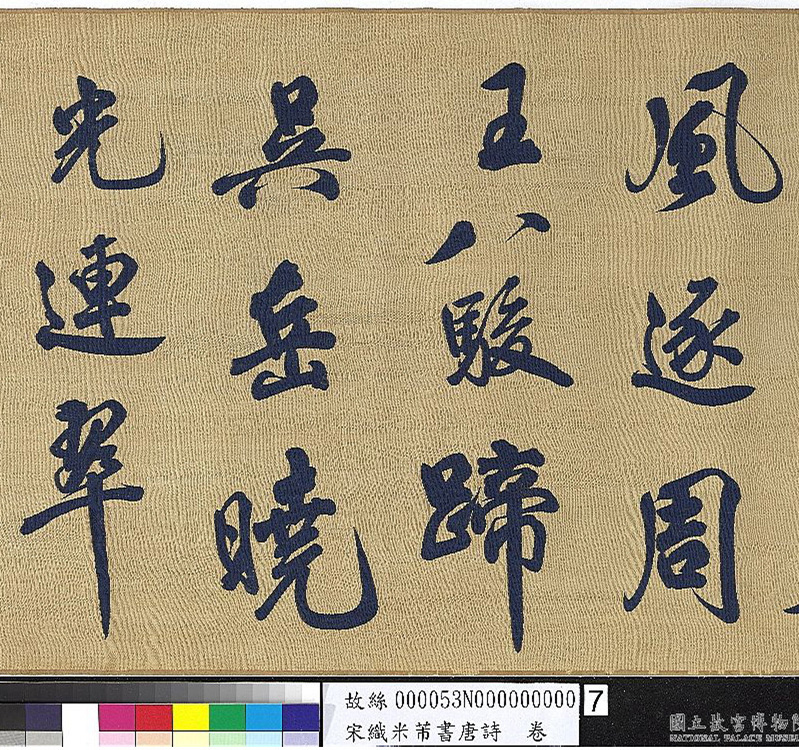 風逐周
王八駿蹄
吳岳曉
光連翠
故絲 000053N000000000 7
宋織米芾書唐詩 卷
國立故宮博物院
NATIONAL PALACE MUSEUM